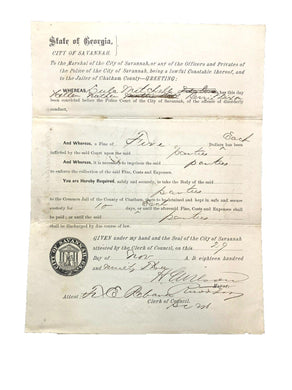 State of Georgia,
CITY OF SAVANNAH.
To the Marshal of the City of Savannah, or any of the Officers and Privates of
the Police of the City of Savannah, being a lawful Constable thereof, and
to the Jailer of Chatham County—GREETING:
WHEREAS, Mitchell ha this day
been convicted before the Police Court of the City of Savannah, of the offense of disorderly
conduct,
Each
And Whereas, a Fine of Five Dollars has been
inflicted by the said Court upon the said parties
And Whereas, it is needful to imprison the said parties
to enforce the collection of the said Fine, Costs and Expenses.
You are Hereby Required, safely and securely, to take the Body of the said
parties
to the Common Jail of the County of Chatham, there to be detained and kept in safe and secure
custody for 10 days or until the aforesaid Fine, Costs and Expenses shall
be paid; or until the said parties shall
be discharged by due course of law.
GIVEN under my hand and the Seal of the City of Savannah
attested by the Clerk of Council, on this 29
Day of Nov A. D. eighteen hundred
and ninety three
Mayor.
Attest: F. E. Rebarer
Clerk of Council.